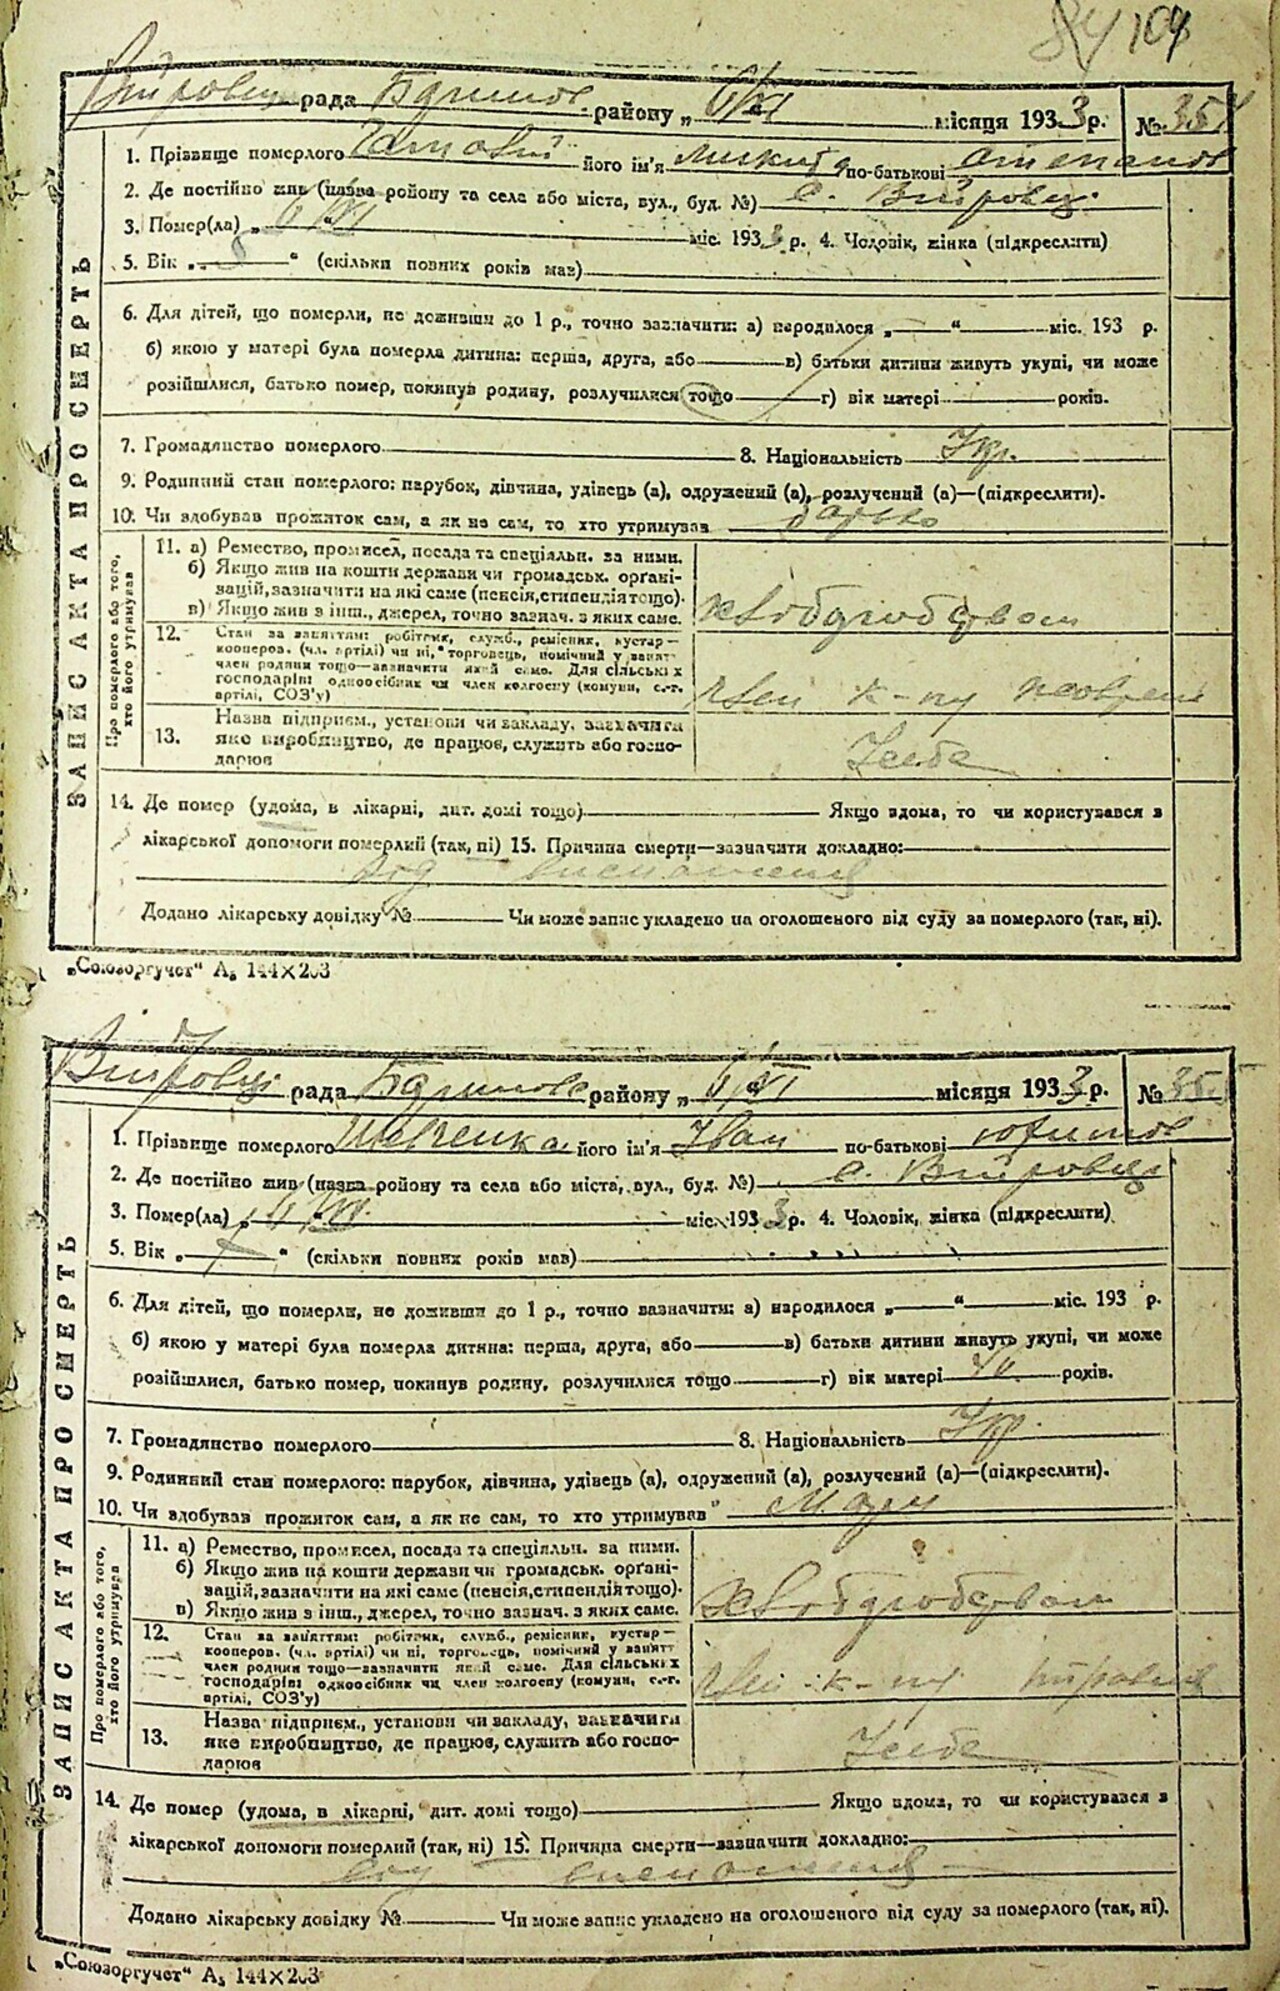 84 104
Війтовец рада Бариш. району „6/VI місяця 1933 р. № 354
1. Прізвище померлого його ім'я Микита по-батькові Степанов
2. Де постійно жив (назва району та села або міста, вул., буд. №) с. Війтовці
3. Помер(ла) „6/VI міс. 1933 р. 4. Чоловік, жінка (підкреслити)
5. Вік „8“ (скільки повних років мав)
6. Для дітей, що померли, не доживши до 1 р., точно зазначити: а) народилося „ “ міс. 193 р.
б) якою у матері була померла дитина: перша, друга, або в) батьки дитини живуть укупі, чи може
розійшлися, батько помер, покинув родину, розлучилися тощо г) вік матері років.
7. Громадянство померлого 8. Національність Укр.
9. Родинний стан померлого: парубок, дівчина, удівець (а), одружений (а), розлучений (а)—(підкреслити).
10. Чи здобував прожиток сам, а як не сам, то хто утримував батько
ЗАПИС АКТА ПРО СМЕРТЬ
Про померлого або того, хто його утримував
11. а) Ремество, промисел, посада та спеціяльн. за ними.
б) Якщо жив на кошти держави чи громадськ. орґані-
зацій, зазначити на які саме (пенсія, стипендія тощо).
в) Якщо жив з інш., джерел, точно зазнач. з яких саме.
хлібороборством
12. Стан за заняттям: робітник, служб., ремісник, кустар—
кооперов. (чл. артілі) чи ні, торговець, помічний у занят.
член родини тощо—зазначити який саме. Для сільських
господарів: одноосібник чи член колгоспу (комуни, с.-г.
артілі, СОЗ'у)
Член к-пу
13. Назва підприєм., установи чи закладу, зазначити
яке виробництво, де працює, служить або госпо-
дарює
14. Де помер (удома, в лікарні, дит. домі тощо) Якщо вдома, то чи користувався з
лікарської допомоги померлий (так, ні) 15. Причина смерти—зазначити докладно:
від виснаження
Додано лікарську довідку № Чи може запис укладено на оголошеного від суду за померлого (так, ні).
„Союзоргучет“ А₅ 144×203
Війтовці рада Баришов. району „6/VI місяця 1933 р. № 355
1. Прізвище померлого Шевченко його ім'я Іван по-батькові Юхимов
2. Де постійно жив (назва району та села або міста, вул., буд. №) с. Війтовці
3. Помер(ла) „6/VI. міс. 1933 р. 4. Чоловік, жінка (підкреслити)
5. Вік „7“ (скільки повних років мав)
6. Для дітей, що померли, не доживши до 1 р., точно зазначити: а) народилося „ “ міс. 193 р.
б) якою у матері була померла дитина: перша, друга, або в) батьки дитини живуть укупі, чи може
розійшлися, батько помер, покинув родину, розлучилися тощо г) вік матері 40 років.
7. Громадянство померлого 8. Національність Укр.
9. Родинний стан померлого: парубок, дівчина, удівець (а), одружений (а), розлучений (а)—(підкреслити).
10. Чи здобував прожиток сам, а як не сам, то хто утримував Мати
ЗАПИС АКТА ПРО СМЕРТЬ
Про померлого або того, хто його утримував
11. а) Ремество, промисел, посада та спеціяльн. за ними.
б) Якщо жив на кошти держави чи громадськ. орґані-
зацій, зазначити на які саме (пенсія, стипендія тощо).
в) Якщо жив з інш., джерел, точно зазнач. з яких саме.
хлібороборством
12. Стан за заняттям: робітник, служб., ремісник, кустар—
кооперов. (чл. артілі) чи ні, торговець, помічний у занят.
член родини тощо—зазначити який саме. Для сільських
господарів: одноосібник чи член колгоспу (комуни, с.-г.
артілі, СОЗ'у)
Член к-пу
13. Назва підприєм., установи чи закладу, зазначити
яке виробництво, де працює, служить або госпо-
дарює
14. Де помер (удома, в лікарні, дит. домі тощо) Якщо вдома, то чи користувався з
лікарської допомоги померлий (так, ні) 15. Причина смерти—зазначити докладно:
від виснаження
Додано лікарську довідку № Чи може запис укладено на оголошеного від суду за померлого (так, ні).
„Союзоргучет“ А₅ 144×203